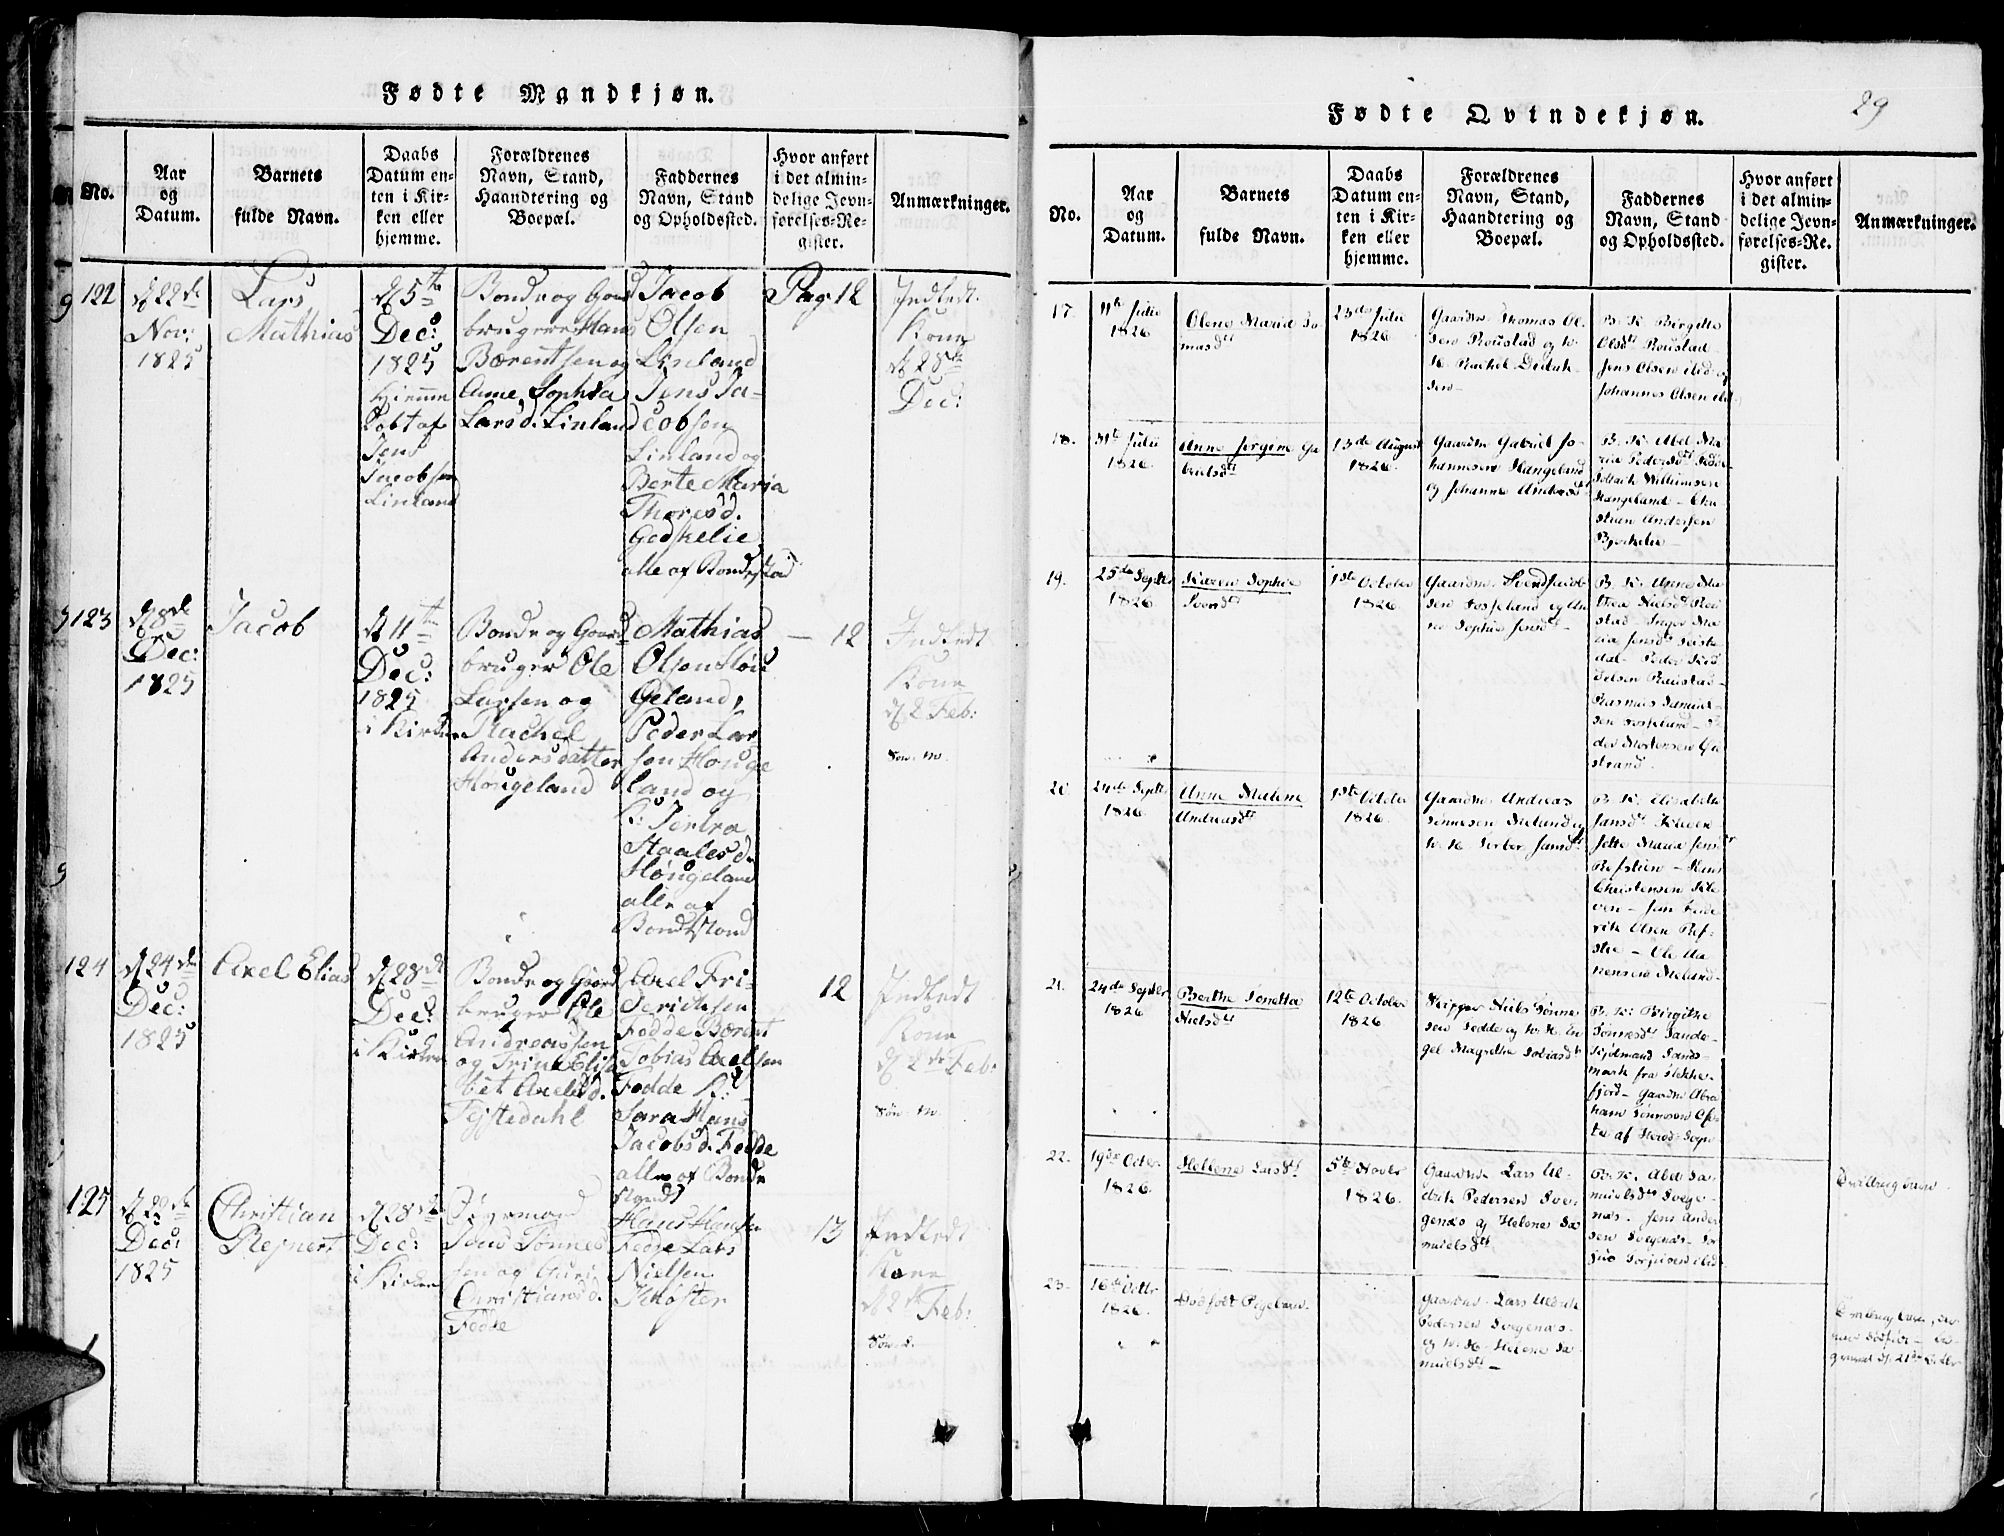 Fødte Mandkjøn.
No.
Aar
og
Datum.
Barnets
fulde Navn.
Daabs
Datum en-
ten i Kir-
ken eller
hjemme.
Forældrenes
Navn, Stand,
Haandtering og
Boepæl.
Faddernes
Navn, Stand
og Opholdssted.
Hvor anført
i det almin-
delige Jevn-
førelses-Re-
gister.
Anmærkninger.
122
d 22de
Nov:
1825
Lars
Mathias
d 5te
Dec:
1825
Hiemme
Døbt af
Jens
Jacobsen
Linland
Bonde og Gaard
bruger Hans
Bærentsen og
Anne Sophia
Larsd. Linland
Jacob
Olsen
Linland
Jens Ja-
cobsen
Linland og
Berte Maria
Thoresd.
Godskelie
alle af Bondestad
Pag. 12
Indledt
Kone
d 28de
Dec:
123
d 8de
Dec:
1825
Jacob
d 11te
Dec:
1825
i Kirken
Bonde og Gaard
bruger Ole
Larsen og
Rachel
Andersdatter
Hougeland
Mathias
Olsen
Geland,
Peder Lar
sen Houge
land og
K:
Staalesd.
Hougeland
alle af
Bondestand
12
Indledt
Kone
d 2 Feb:
124
d 24de
Dec:
1825
Axel Elias
d 28de
Dec:
i Kirken
Bonde og Gaard
bruger Ole
Andreassen
og Trine Elisa
bet Axelsd.
Tejstedahl
Axel Fri-
derichsen
Fedde Berent
Tobias Axelsen
Fedde K:
Sara Hans
Jacobsd. Fedde
alle af Bonde
stand
12
Indledt
Kone
d 2de Feb:
125
Dec:
1825
Christian
Rejnert
d 28de
Dec:
i Kirken
Jens Tønnes
sen og Guri
Christiansd.
Fedde
Hans Hansen
Fedde Lars
Nielsen
13
Indledt
Kone
d 2de Feb:
Fødte Qvindekjøn.
29
No.
Aar
og
Datum.
Barnets
fulde Navn.
Daabs
Datum en-
ten i Kir-
ken eller
hjemme.
Forældrenes
Navn, Stand,
Haandtering og
Boepæl.
Faddernes
Navn, Stand
og Opholdssted.
Hvor anført
i det almin-
delige Jevn-
førelses-Re-
gister.
Anmærkninger.
17.
11te Julii
1826
Olene Maria To-
masdtr
23de Julii
1826
Gaardm. Thomas Ol-
sen Roustad og h.
K. Rachel Didrik-
sen
B. K. Birgitte
Olsdtr Roustad
Jens Olsen ibid og
Johannes Olsen ibid.
18.
31te Julii
1826
Anne Jorgine Ga
brielsdtr
13de August
1826.
Gaardm Gabriel Jo-
hannesen Hangeland
og Johanne Andersdtr
B. K. Abel Ma-
ria Pedersdtr Fedde
Willumsen
Hangeland - Chri
stian Andersen
Bjerkelie
19.
25de Septbr
1826
Karen Sophie
Svendsdtr
1ste October
1826.
Gaardm. Svend Jacob
sen Fosseland og An
ne Sophie Jensdtr
B. K. Anne Ma-
thea Nielsdtr Rou
stad - Inger Ma
ria Jensdtr Teiste
dal - Peder
Roustad -
Rasmus Samuel-
sen Fosseland -
der Mortensen
strand.
20.
24de Septbr
1826.
Anne Malene
Andreasdtr
1ste October
1826.
Gaardm. Andreas
Tønnesen Meland og
h. K. Jansdtr
B. K. Elisabeth
Jansdtr Kleven
Jette Maria Jensdtr
Refstien - Hans
Christensen Kle
ven - Jan Fride
rik Olsen Ref-
stie - Ole Ha
nsen Meland -
21.
24de Septbr
1826
Berthe Tonetta
Nielsdtr
12te October
1826
Skipper Niels Tønne
sen Fedde og h. K. En
gel Magrethe Tobiasdtr
B. K: Birgithe
Tønnesdtr Sande -
Kjøbmand Sands-
mark fra Flekke-
fjord - Gaardm Abra
ham Tønnesen
af Herads Sogn
22.
19de Octbr
1826.
Hellene Larsdtr
5te Novbr
1826.
Gaardm Lars Ul-
drik Pedersen Sve-
genæs og Helene Sa-
muelsdtr
B. K. Abel Sa-
muelsdtr Svege-
næs. Jens Ander
sen Svegenæs -
Torjusen ibid.
Tvilling barn.
23.
16de Octbr
1826.
Dødfødt Pigebarn.
Gaardm. Lars Uldrik
Pedersen Svegenæs -
og h. K. Helene Sa-
muelsdtr -